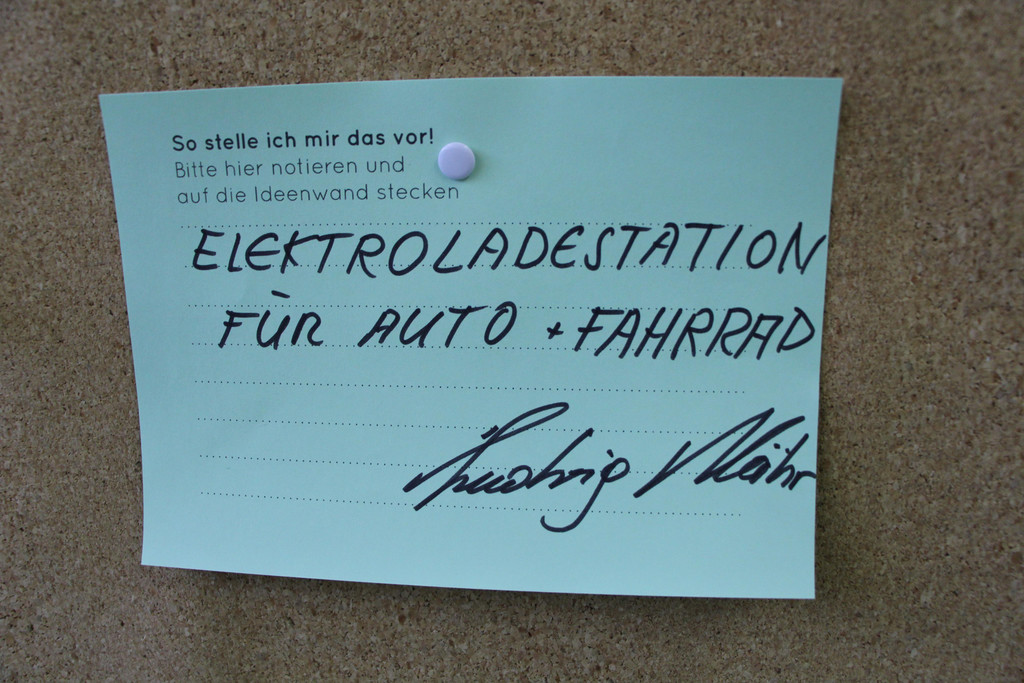 So stelle ich mir das vor!
Bitte hier notieren und
auf die Ideenwand stecken
ELEKTROLADESTATION
FÜR AUTO + FAHRRAD
Ludwig